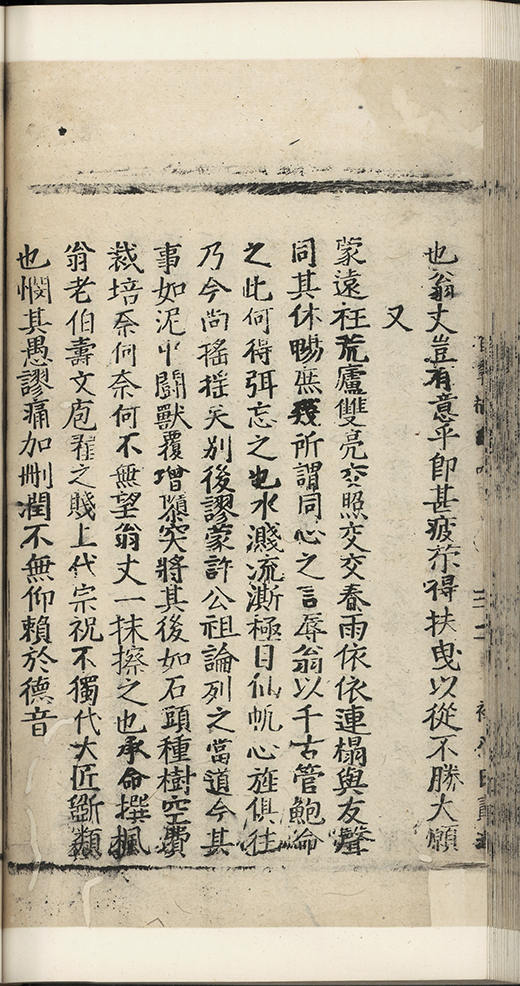 也翁丈豈有意乎即甚疲茶得扶曳以從不勝大願
又
蒙遠枉荒廬雙亮交照交交春雨依依連榻與友聲
同其休暢庶幾所謂同心之言辱翁以千古管鮑命
之此何得弭忘之也水濺流澌極目仙帆心旌俱往
乃今尚搖搖矣別後謬蒙許公祖論列之當道今其
事如泥中鬪獸覆增隳突將其後如石頭種樹空費
栽培奈何奈何不無望翁丈一抹擦之也承命撰楓
翁老伯壽文庖之賤上代宗祝不獨代大匠斵類
也憫其愚謬痛加刪潤不無仰賴於德音